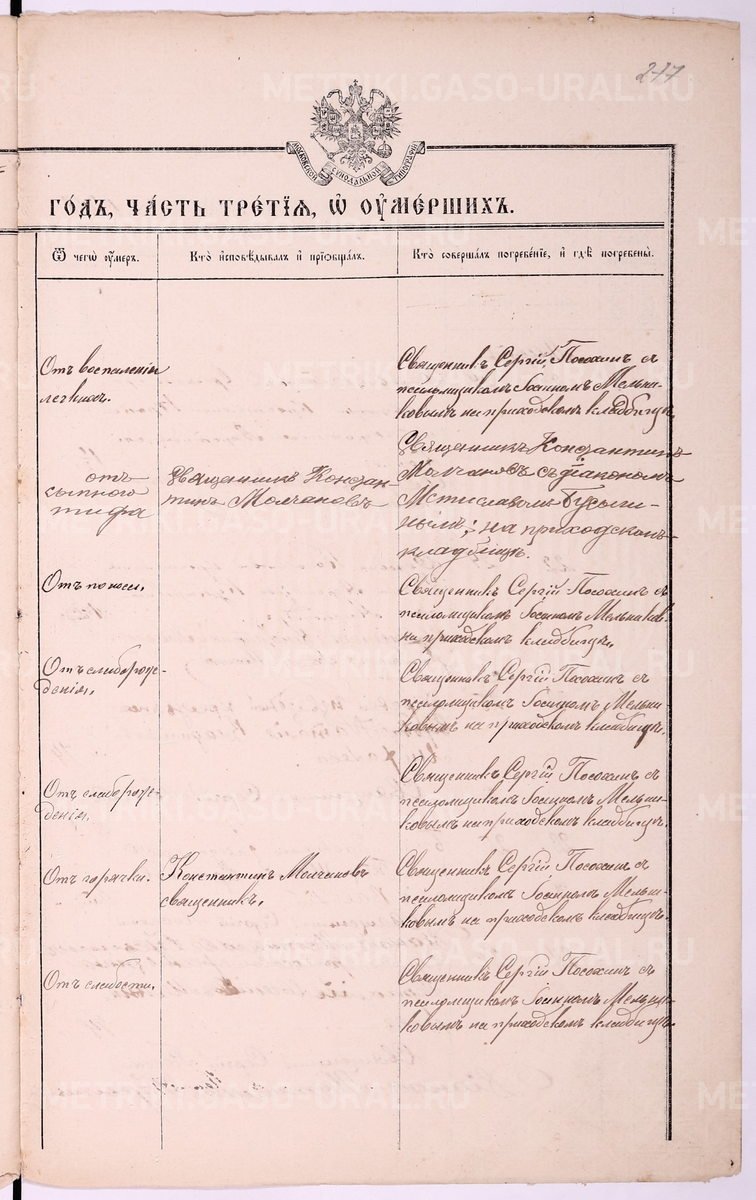 247
МОСКОВСКОЙ СѴНОДАЛЬНОЙ ТИПОГРАФІИ
ГО́ДЪ, ЧА́СТЬ ТРЕ́ТІѦ, Ѡ҆ ОУ҆МЕ́РШИХЪ.
Ѿ чегѡ̀ ᲂу҆́меръ.
Кто̀ и҆сповѣ́дывалъ и҆ прїѡбща́лъ.
Кто̀ соверша́лъ погребе́нїе, и҆ гдѣ̀ погребены̀.
Отъ воспаленія
легкихъ.
Священникъ Сергій Посохинъ съ
псаломщикомъ Іосифомъ Мельни-
ковымъ на приходскомъ кладбищѣ.
отъ
сыпного
тифа
Священникъ Констан
тинъ Молчановъ
Священникъ Константинъ
Молчановъ съ діакономъ
Мстиславомъ Бусыги-
нымъ; на приходскомъ
кладбищѣ.
Отъ поноса.
Священникъ Сергій Посохинъ съ
псаломщикомъ Іосифомъ Мельников
на приходскомъ кладбищѣ.
Отъ слаборож-
денія.
Священникъ Сергій Посохинъ съ
псаломщикомъ Іосифомъ Мельни-
ковымъ на приходскомъ кладбищѣ.
Отъ слаборож-
денія.
Священникъ Сергій Посохинъ съ
псаломщикомъ Іосифомъ Мельни-
ковымъ на приходскомъ кладбищѣ.
Отъ горячки.
Константинъ Молчановъ
священникъ.
Священникъ Сергій Посохинъ съ
псаломщикомъ Іосифомъ Мельни-
ковымъ на приходскомъ кладбищѣ.
Отъ слабости.
Священникъ Сергій Посохинъ съ
псаломщикомъ Іосифомъ Мельни-
ковымъ на приходскомъ кладбищѣ.
METRIKI.GASO-URAL.RU